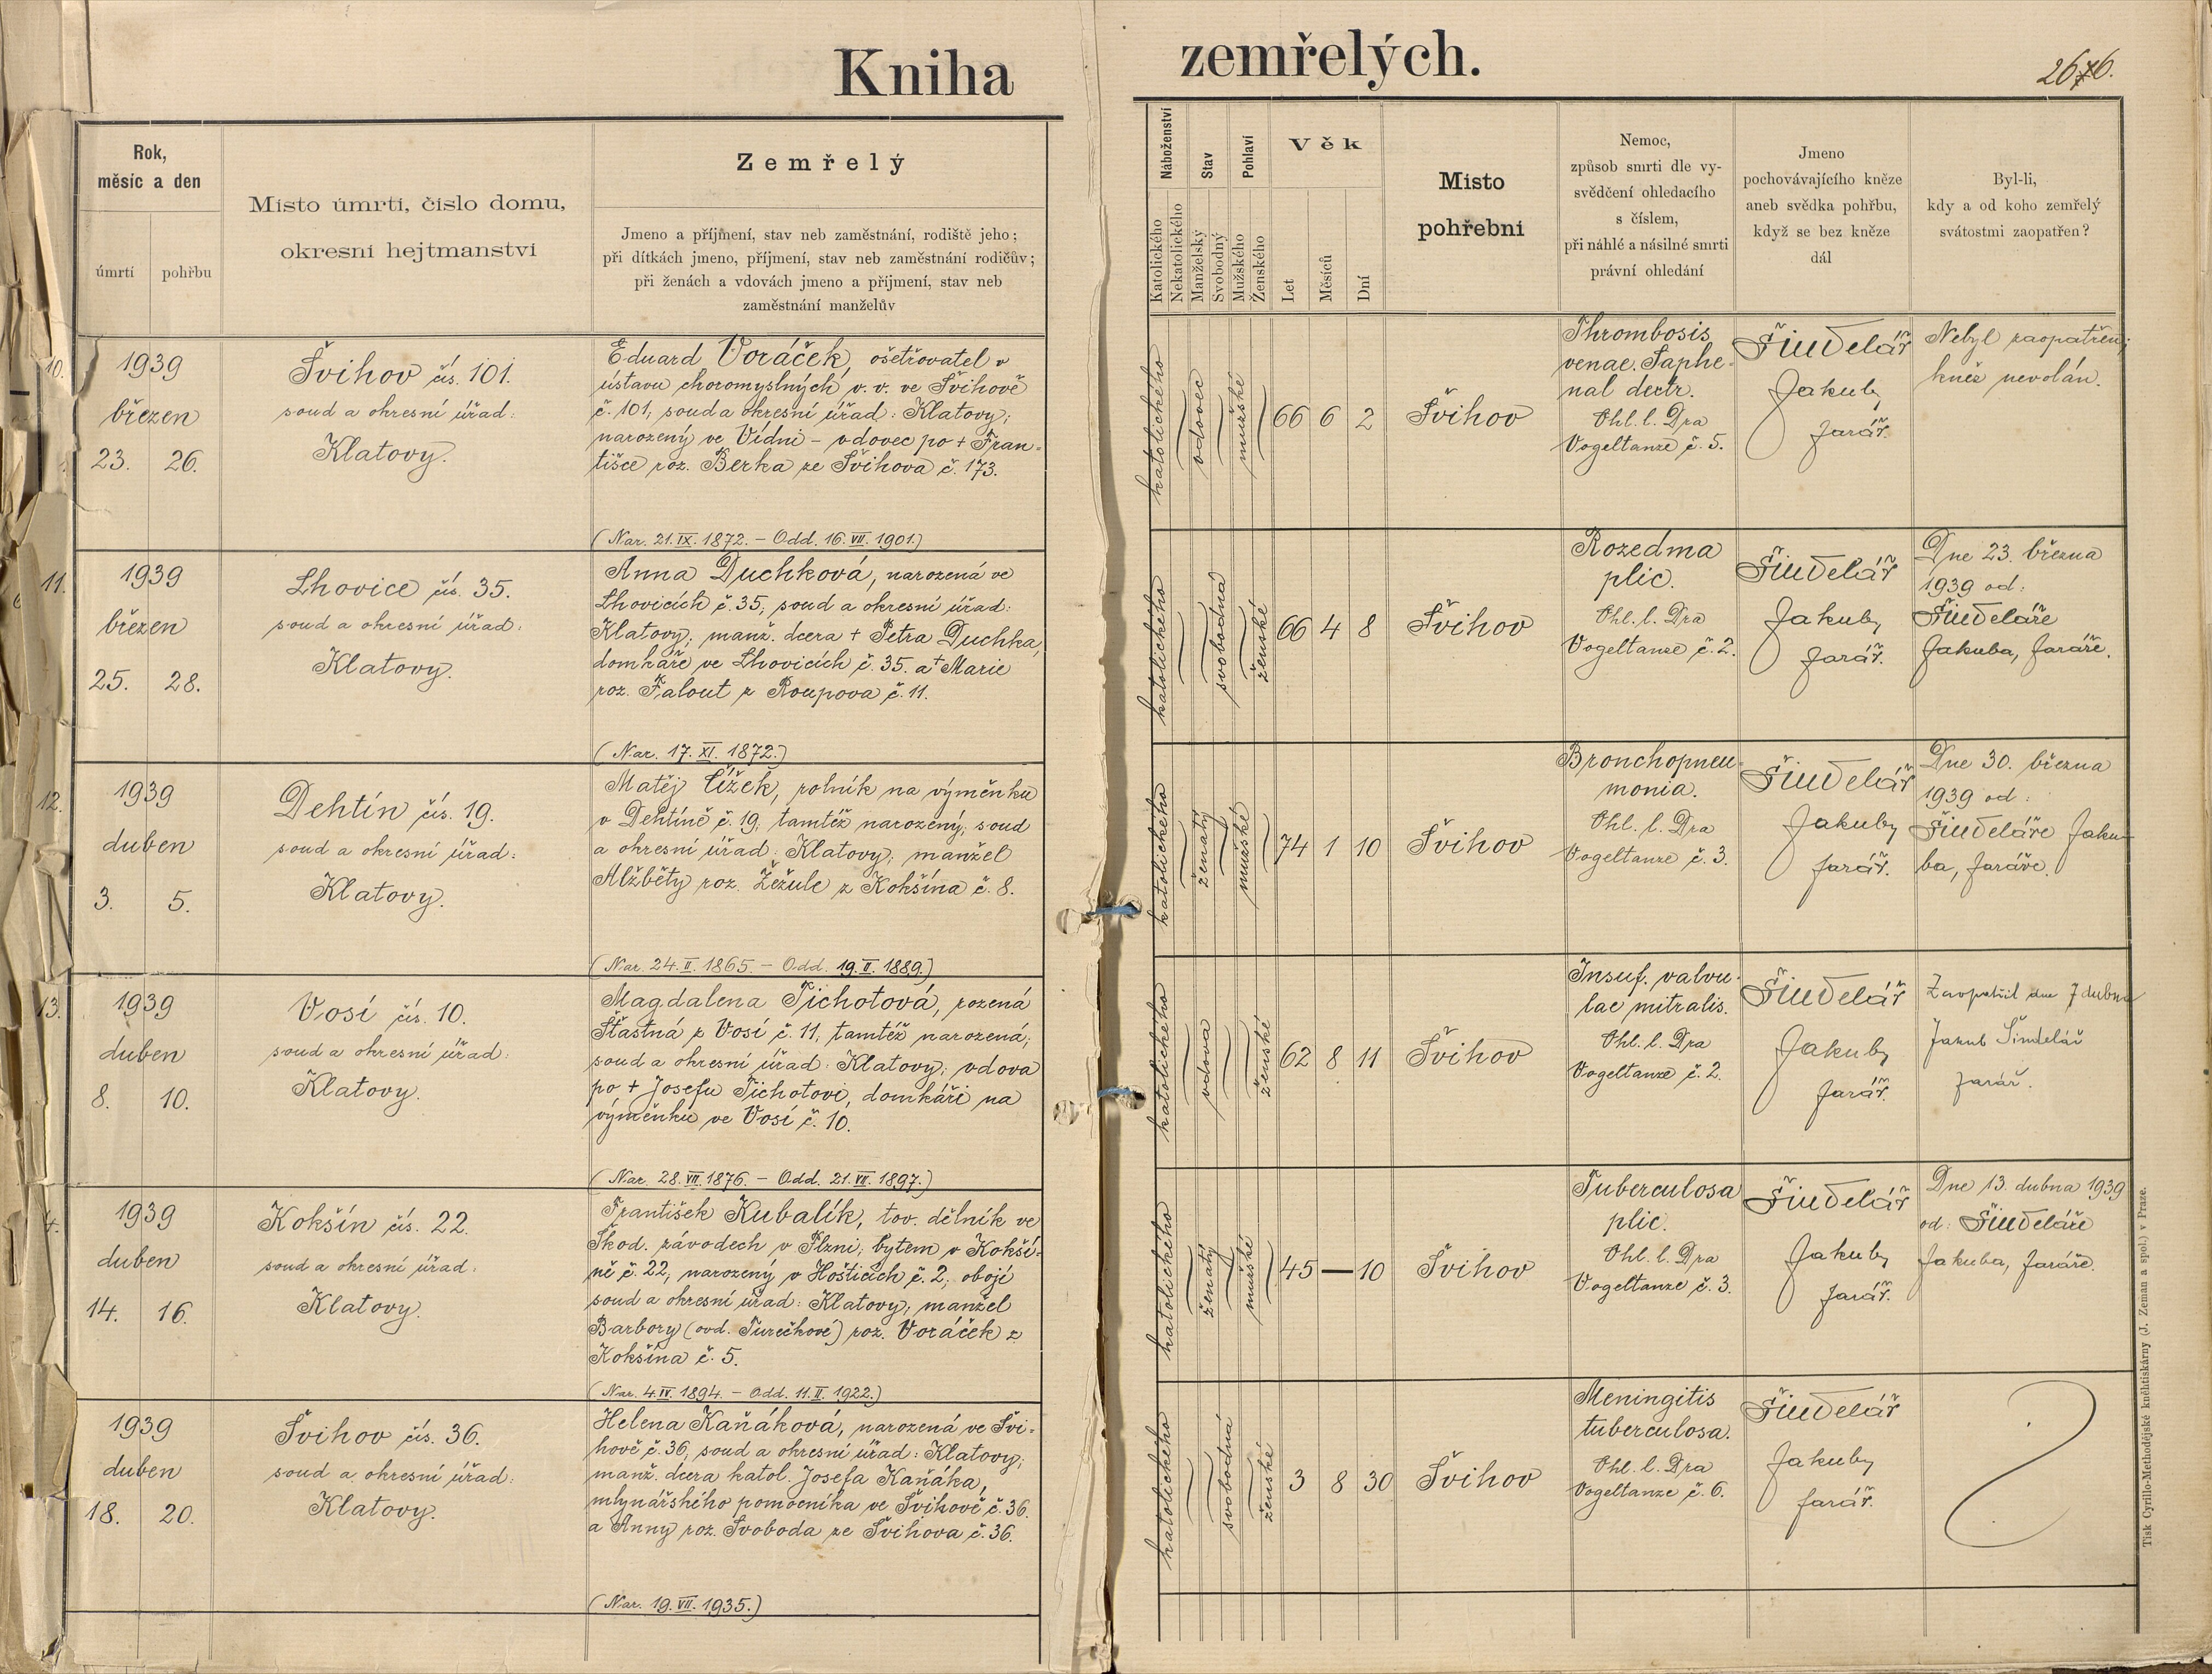 Kniha
zemřelých.
266.
Rok,
měsíc a den
úmrtí
pohřbu
Místo úmrtí, číslo domu,
okresní hejtmanství
Zemřelý
Jmeno a příjmení, stav neb zaměstnání, rodiště jeho;
při dítkách jmeno, příjmení, stav neb zaměstnání rodičův;
při ženách a vdovách jmeno a příjmení, stav neb
zaměstnání manželův
Náboženství
Katolického
Nekatolického
Stav
Manželský
Svobodný
Pohlaví
Mužského
Ženského
Věk
Let
Měsíců
Dní
Místo
pohřební
Nemoc,
způsob smrti dle vy-
svědčení ohledacího
s číslem,
při náhlé a násilné smrti
právní ohledání
Jmeno
pochovávajícího kněze
aneb svědka pohřbu,
když se bez kněze
dál
Byl-li,
kdy a od koho zemřelý
svátostmi zaopatřen?
10.
1939
březen
23. 26.
Švihov čís. 101.
soud a okresní úřad:
Klatovy.
Eduard Voráček, ošetřovatel v
ústavu choromyslných, v. v. ve Švihově
č. 101; soud a okresní úřad: Klatovy;
narozený ve Vídni – vdovec po + Fran-
tišce roz. Berka ze Švihova č. 173.
(Nar. 21. IX. 1872. – Odd. 16. VII. 1901.)
katolického
vdovec
mužské
66 6 2
Švihov
Thrombosis
venae. Saphe-
nal dextr.
Ohl. l. Dra
Vogeltanze č. 5.
Šindelář
Jakub,
farář.
Nebyl zaopatřen;
kněz nevolán.
11.
1939
březen
25. 28.
Lhovice čís. 35.
soud a okresní úřad:
Klatovy.
Anna Duchková, narozená ve
Lhovicích č. 35; soud a okresní úřad:
Klatovy; manž. dcera + Petra Duchka,
domkáře ve Lhovicích č. 35. a + Marie
roz. Falout z Roupova č. 11.
(Nar. 17. XI. 1872.)
katolického
svobodná
ženské
66 4 8
Švihov
Rozedma
plic.
Ohl. l. Dra
Vogeltanze č. 2.
Šindelář
Jakub,
farář.
Dne 23. března
1939 od:
Šindeláře
Jakuba, faráře.
12.
1939
duben
3. 5.
Dehtín čís. 19.
soud a okresní úřad:
Klatovy.
Matěj Čížek, rolník na výměnku
v Dehtíně č. 19; tamtéž narozený; soud
a okresní úřad: Klatovy; manžel
Alžběty roz. Žežule z Kokšína č. 8.
(Nar. 24. II. 1865. – Odd. 19. II. 1889.)
katolického
ženatý
mužské
74 1 10
Švihov
Bronchopneu-
monia.
Ohl. l. Dra
Vogeltanze č. 3.
Šindelář
Jakub,
farář.
Dne 30. března
1939 od:
Šindeláře Jaku-
ba, faráře.
13.
1939
duben
8. 10.
Vosí čís. 10.
soud a okresní úřad:
Klatovy.
Magdalena Tichotová, rozená
Šťastná z Vosí č. 11; tamtéž narozená;
soud a okresní úřad: Klatovy; vdova
po + Josefu Tichotovi, domkáři na
výměnku ve Vosí č. 10.
(Nar. 28. VII. 1876. – Odd. 21. VII. 1897.)
katolického
vdova
ženské
62 8 11
Švihov
Insuf. valvu-
lae mitralis.
Ohl. l. Dra
Vogeltanze č. 2.
Šindelář
Jakub,
farář.
Zaopatřil dne 7 dubna
Jakub Šindelář
farář.
4.
1939
duben
14. 16.
Kokšín čís. 22.
soud a okresní úřad:
Klatovy.
František Kubalík, tov. dělník ve
Škod. závodech v Plzni; bytem v Kokší-
ně č. 22, narozený v Hošticích č. 2; obojí
soud a okresní úřad: Klatovy; manžel
Barbory (ovd. Turečkové) roz. Voráček z
Kokšína č. 5.
(Nar. 4. IV. 1894. – Odd. 11. II. 1922.)
katolického
ženatý
mužské
45 — 10
Švihov
Tuberculosa
plic.
Ohl. l. Dra
Vogeltanze č. 3.
Šindelář
Jakub,
farář.
Dne 13. dubna 1939
od: Šindeláře
Jakuba, faráře.
1939
duben
18. 20.
Švihov čís. 36.
soud a okresní úřad:
Klatovy.
Helena Kaňáková, narozená ve Švi-
hově č. 36; soud a okresní úřad: Klatovy;
manž. dcera katol. Josefa Kaňáka,
mlynářského pomocníka ve Švihově č. 36.
a Anny roz. Svoboda ze Švihova č. 36.
(Nar. 19. VII. 1935.)
katolického
svobodná
ženské
3 8 30
Švihov
Meningitis
tuberculosa.
Ohl. l. Dra
Vogeltanze č. 6.
Šindelář
Jakub,
farář.
Tisk Cyrillo-Methodějské knihtiskárny (J. Zeman a spol.) v Praze.